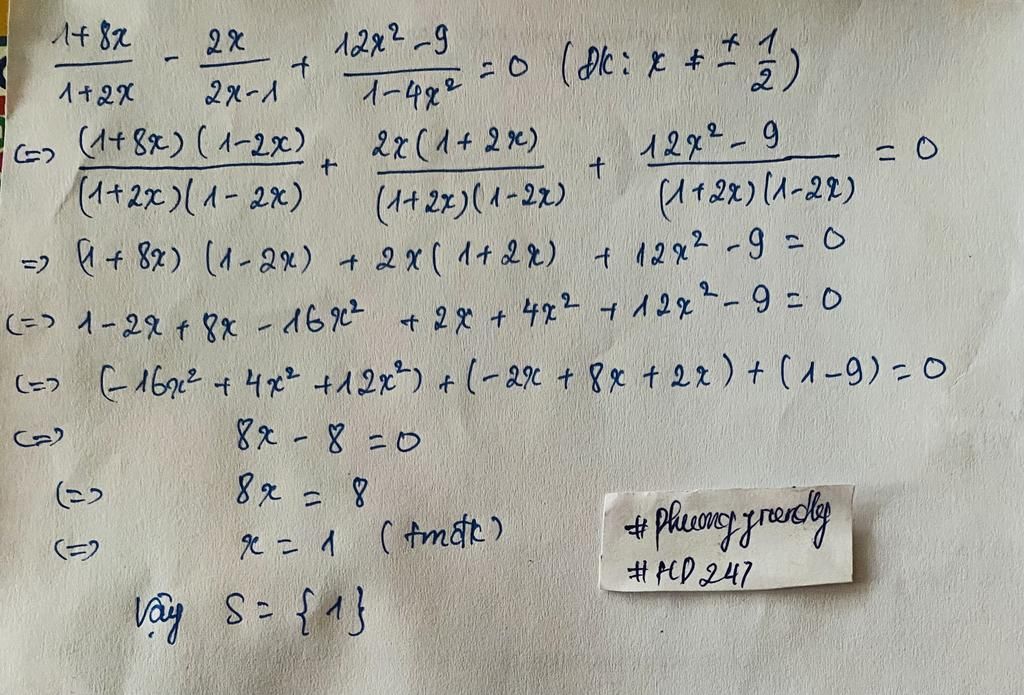 (1+8x)/(1+2x) - 2x/(2x-1) + (12x²-9)/(1-4x²) = 0 (đk: x ≠ ± 1/2)
<=> (1+8x)(1-2x)/(1+2x)(1-2x) + 2x(1+2x)/(1+2x)(1-2x) + (12x²-9)/(1+2x)(1-2x) = 0
=> (1+8x)(1-2x) + 2x(1+2x) + 12x² - 9 = 0
<=> 1-2x+8x-16x² + 2x + 4x² + 12x² - 9 = 0
<=> (-16x² + 4x² + 12x²) + (-2x + 8x + 2x) + (1-9) = 0
<=> 8x - 8 = 0
<=> 8x = 8
<=> x = 1 (tmđk)
Vậy S = {1}
#phuongfriendly
#HD247